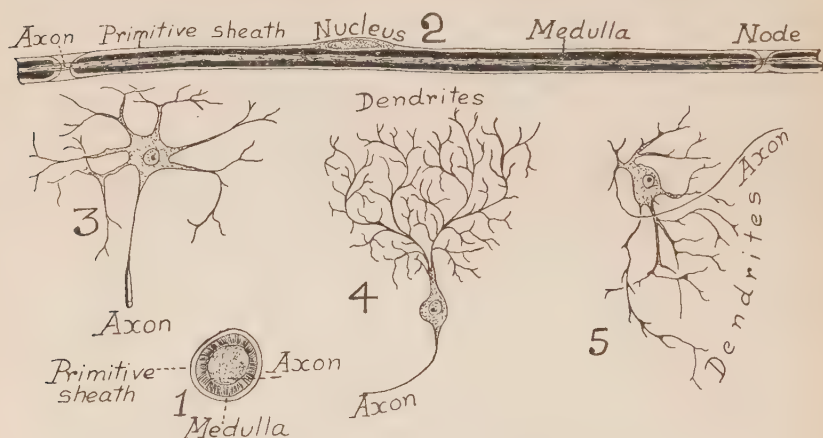 Axon
Primitive sheath
Nucleus
2
Medulla
Node
Dendrites
3
Axon
4
Axon
5
Axon
Dendrites
Primitive
sheath
1
Axon
Medulla